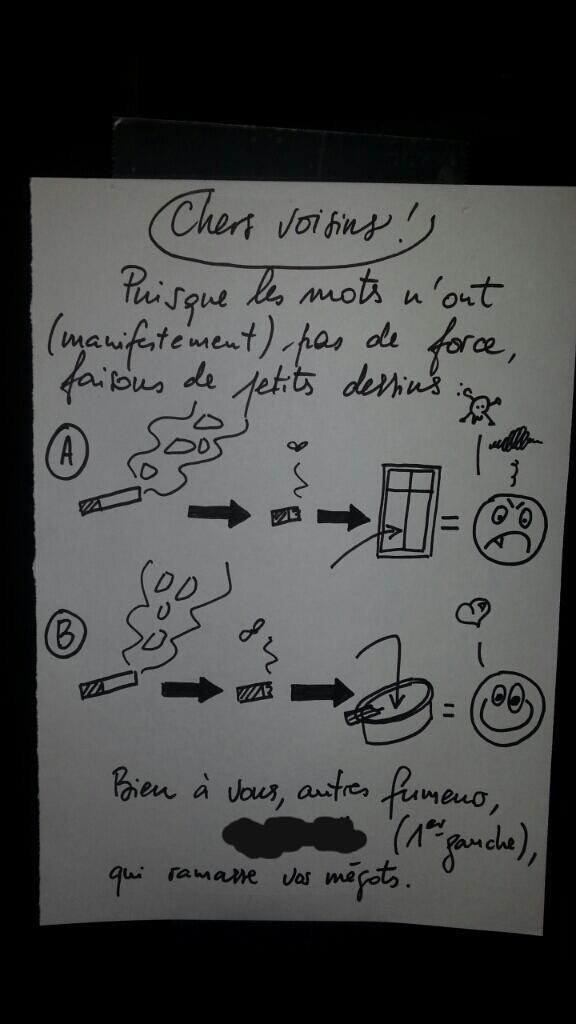 Chers voisins!
Puisque les mots n'ont
(manifestement) pas de force,
faisons de petits dessins :
A
B
Bien à vous, autres fumeurs,
(1er gauche),
qui ramasse vos mégots.